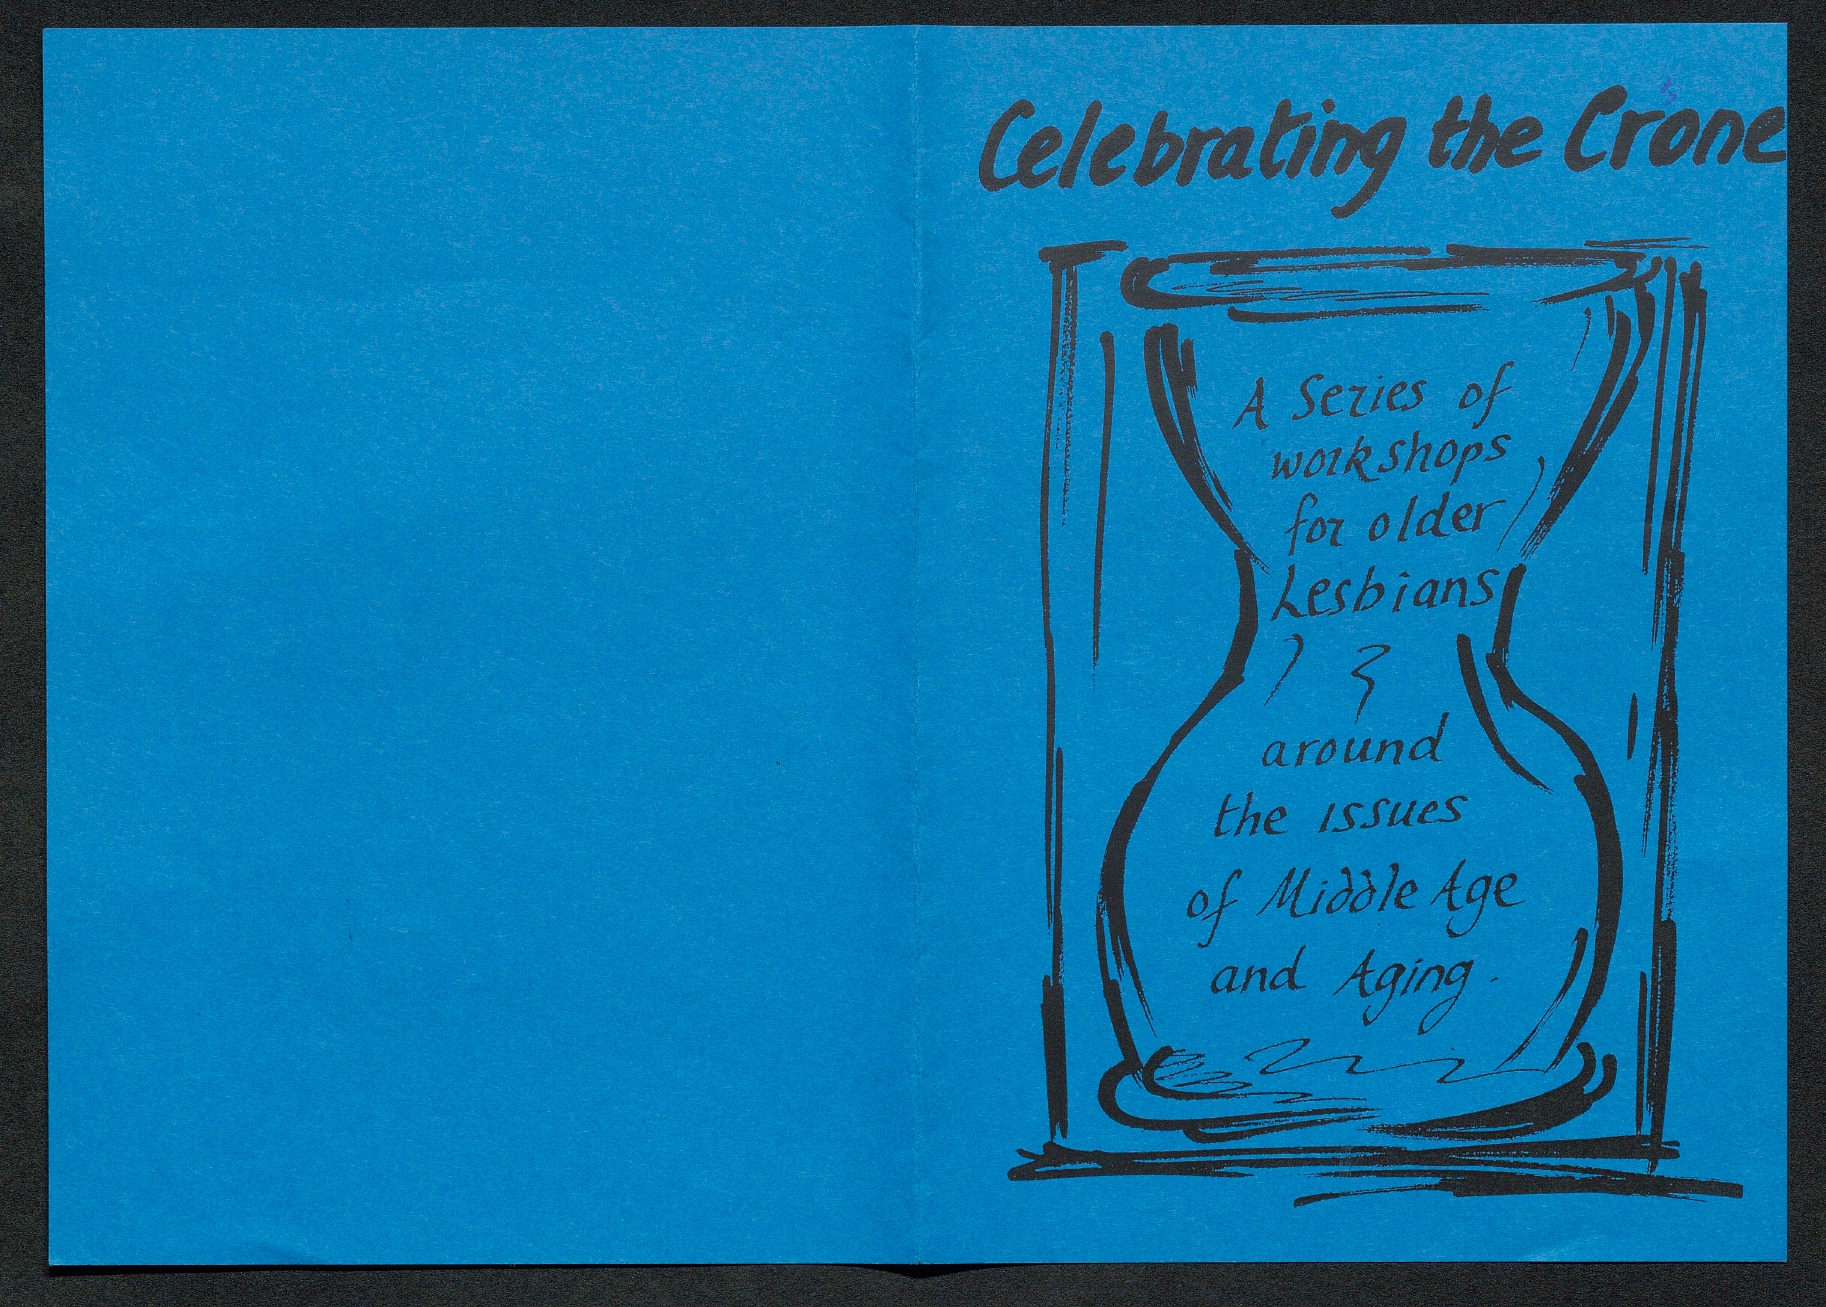 Celebrating the Crone
A Series of
workshops
for older
Lesbians
around
the issues
of Middle Age
and Aging.